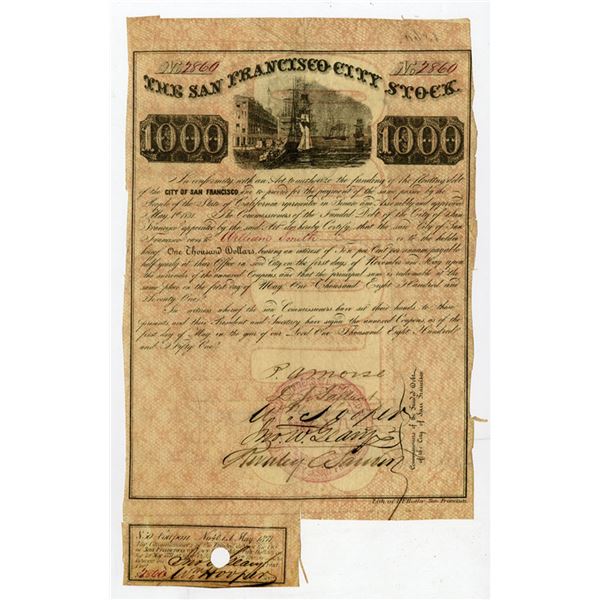 No 2860 No 2860
THE SAN FRANCISCO CITY STOCK.
1000 1000
In conformity with an Act to authorize the funding of the floating debt
of the CITY OF SAN FRANCISCO and to provide for the payment of the same passed by the
People of the State of California represented in Senate and Assembly and approved
May 1st 1851. The Commissioners of the Funded Debt of the City of San
Francisco appointed by the said Act do hereby Certify that the said City of San
Francisco owes to William Smith or to the holder
hereof One Thousand Dollars, bearing an interest of Ten per Cent per annum payable
half yearly at their Office in said City on the first days of November and May upon
the surrender of the annexed Coupons and that the principal sum is redeemable at the
same place on the first day of May One Thousand Eight Hundred and
Seventy One.
In witness whereof the said Commissioners have set their hands to these
presents and their President and Secretary have signed the annexed Coupons, as of the
first day of May in the year of our Lord One Thousand Eight Hundred
and Fifty One.
P. A. Morse
D. J. Tallant
Wm Hooper
Jno. W. Geary
Commissioners of the Funded Debt
of the City of San Francisco
Lith. of Butler San Francisco
Coupon May 1871
The Commissioners of the Funded Debt
of San Francisco
Jno W Geary
2860 Wm Hooper